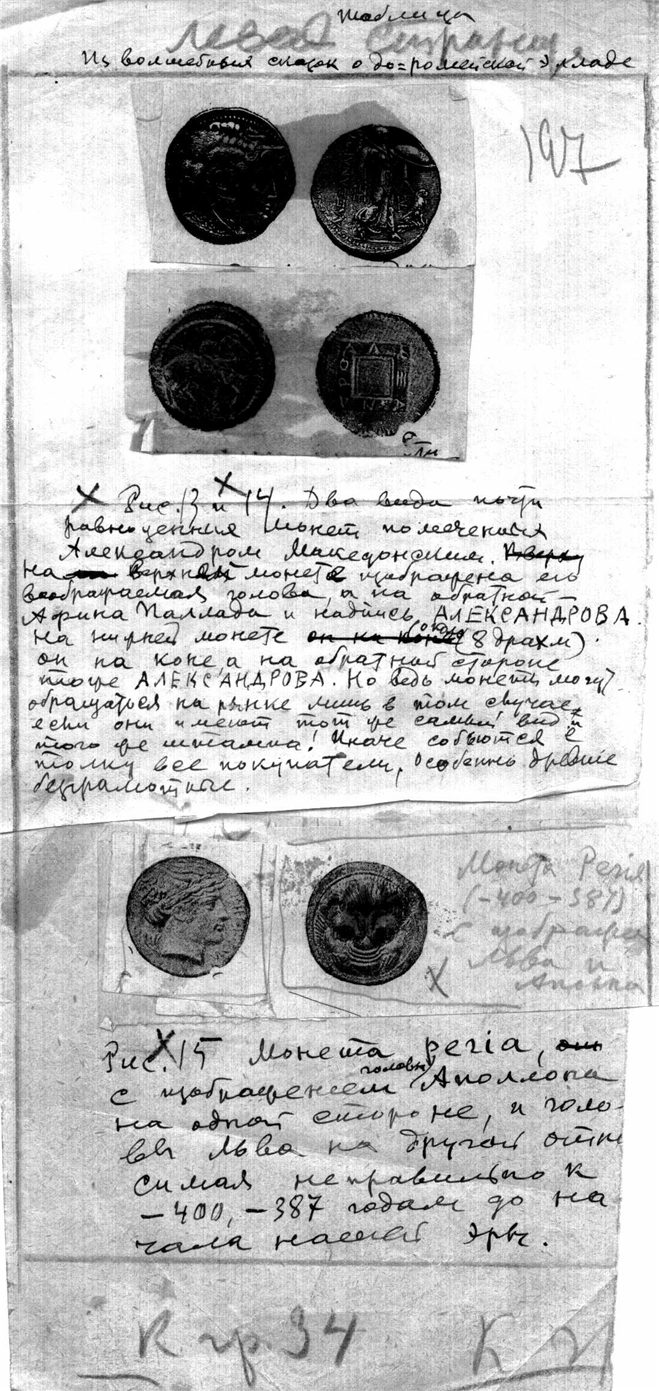 Таблица
левой страниц
Из волшебных сказок о до=ромейской Элладе
197
Рис. 13 и 14. Два вида почти
равноценных монет помеченных
Александром Македонским.
На верхней монете изображена его
воображаемая голова, а на обратной –
Афина Паллада и надпись АЛЕКСАНДРОВА.
На нижней монете (около 8 драхм)
он на коне, а на обратной стороне
тоже АЛЕКСАНДРОВА. Но ведь монеты могут
обращаться на рынке лишь в том случае,
если они имеют тот же самый вид и
того же штампа! Иначе собьются с
толку все покупатели, особенно древние
безграмотные.
Монета Регiя
(-400-387)
с изображен
Льва и
Рис. 15 Монета регiа,
с изображением головы Аполлона
на одной стороне, и голо-
вы льва на другой отно
симая неправильно к
–400, –387 годам до на
чала нашей эры.
К гр. 34